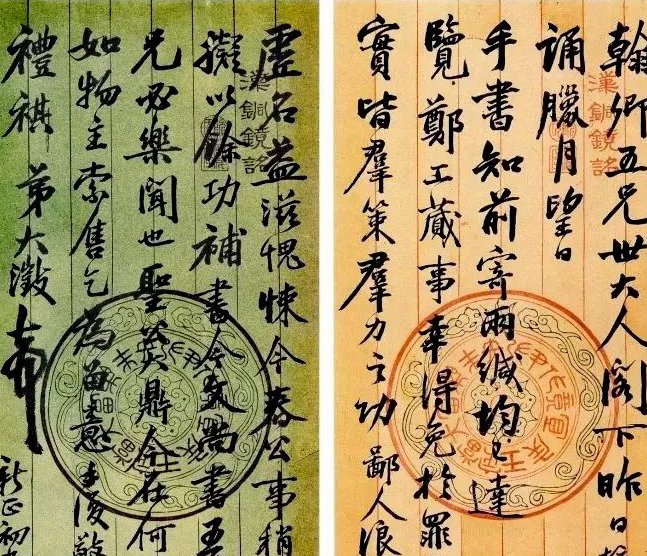 翰卿五兄世大人閣下昨日
誦臘月望日
手書知前寄兩緘均已達
覽鄭工蕆事幸得免於罪
實皆羣策羣力之功鄙人浪
漢銅鏡銘
虛名益滋愧悚今春公事稍
擬以餘功補書今文尚書五
兄必樂聞也聖鼎今在何
如物主索售乞為留意手復敬
禮祺 弟大澂頓首
新正初
漢銅鏡銘